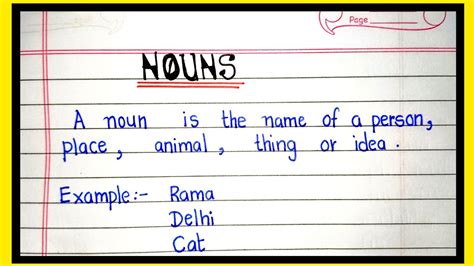 Page
NOUNS
A noun is the name of a person,
place, animal, thing or idea.
Example:- Rama
Delhi
Cat